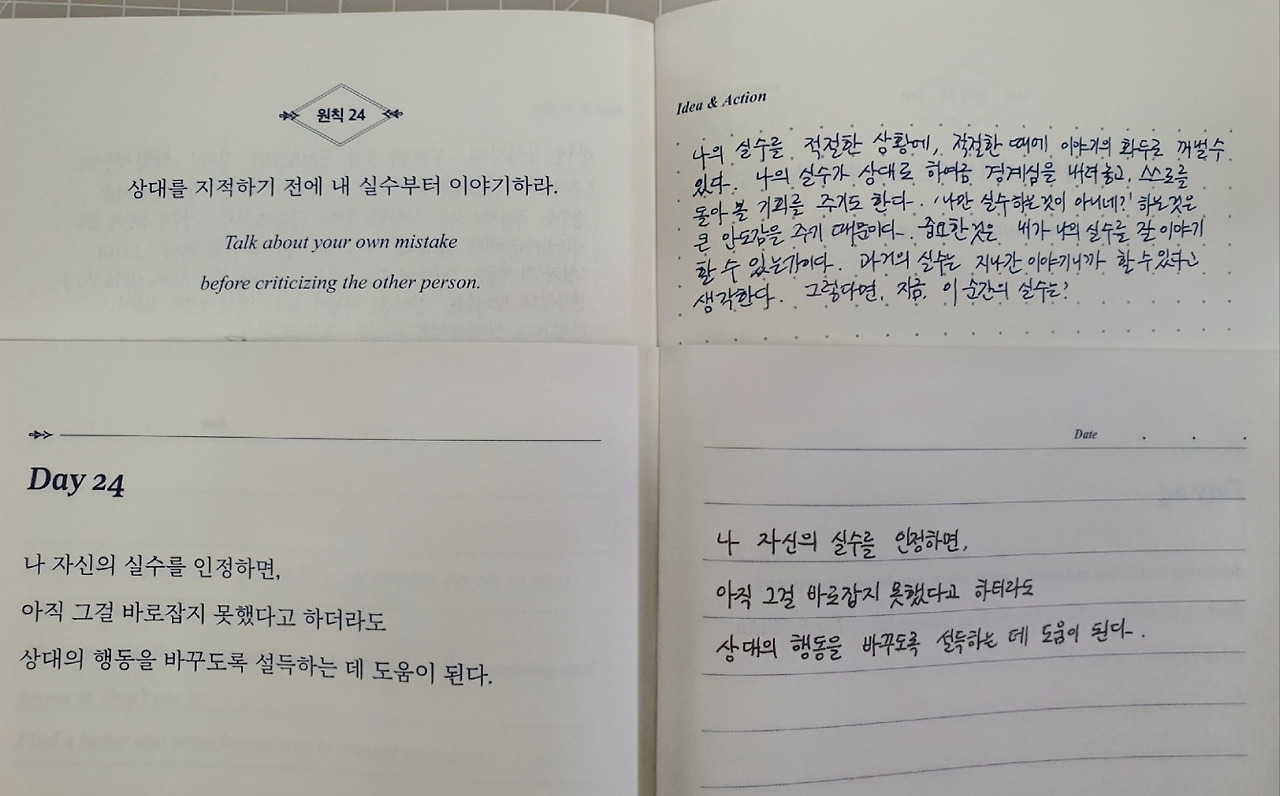 원칙 24
상대를 지적하기 전에 내 실수부터 이야기하라.
Talk about your own mistake
before criticizing the other person.
Idea & Action
나의 실수를 적절한 상황에, 적절한 때에 이야기의 화두로 꺼낼 수
있다. 나의 실수가 상대로 하여금 경계심을 내려놓고, 스스로를
돌아 볼 기회를 주기도 한다. '나만 실수하는것이 아니네?' 하는것은
큰 안도감을 주기 때문이다. 중요한것은 내가 나의 실수를 잘 이야기
할 수 있는가이다. 과거의 실수는 지나간 이야기니까 할 수 있다고
생각한다. 그렇다면, 지금, 이 순간의 실수는?
Day 24
나 자신의 실수를 인정하면,
아직 그걸 바로잡지 못했다고 하더라도
상대의 행동을 바꾸도록 설득하는 데 도움이 된다.
Date . . .
나 자신의 실수를 인정하면,
아직 그걸 바로잡지 못했다고 하더라도
상대의 행동을 바꾸도록 설득하는 데 도움이 된다.